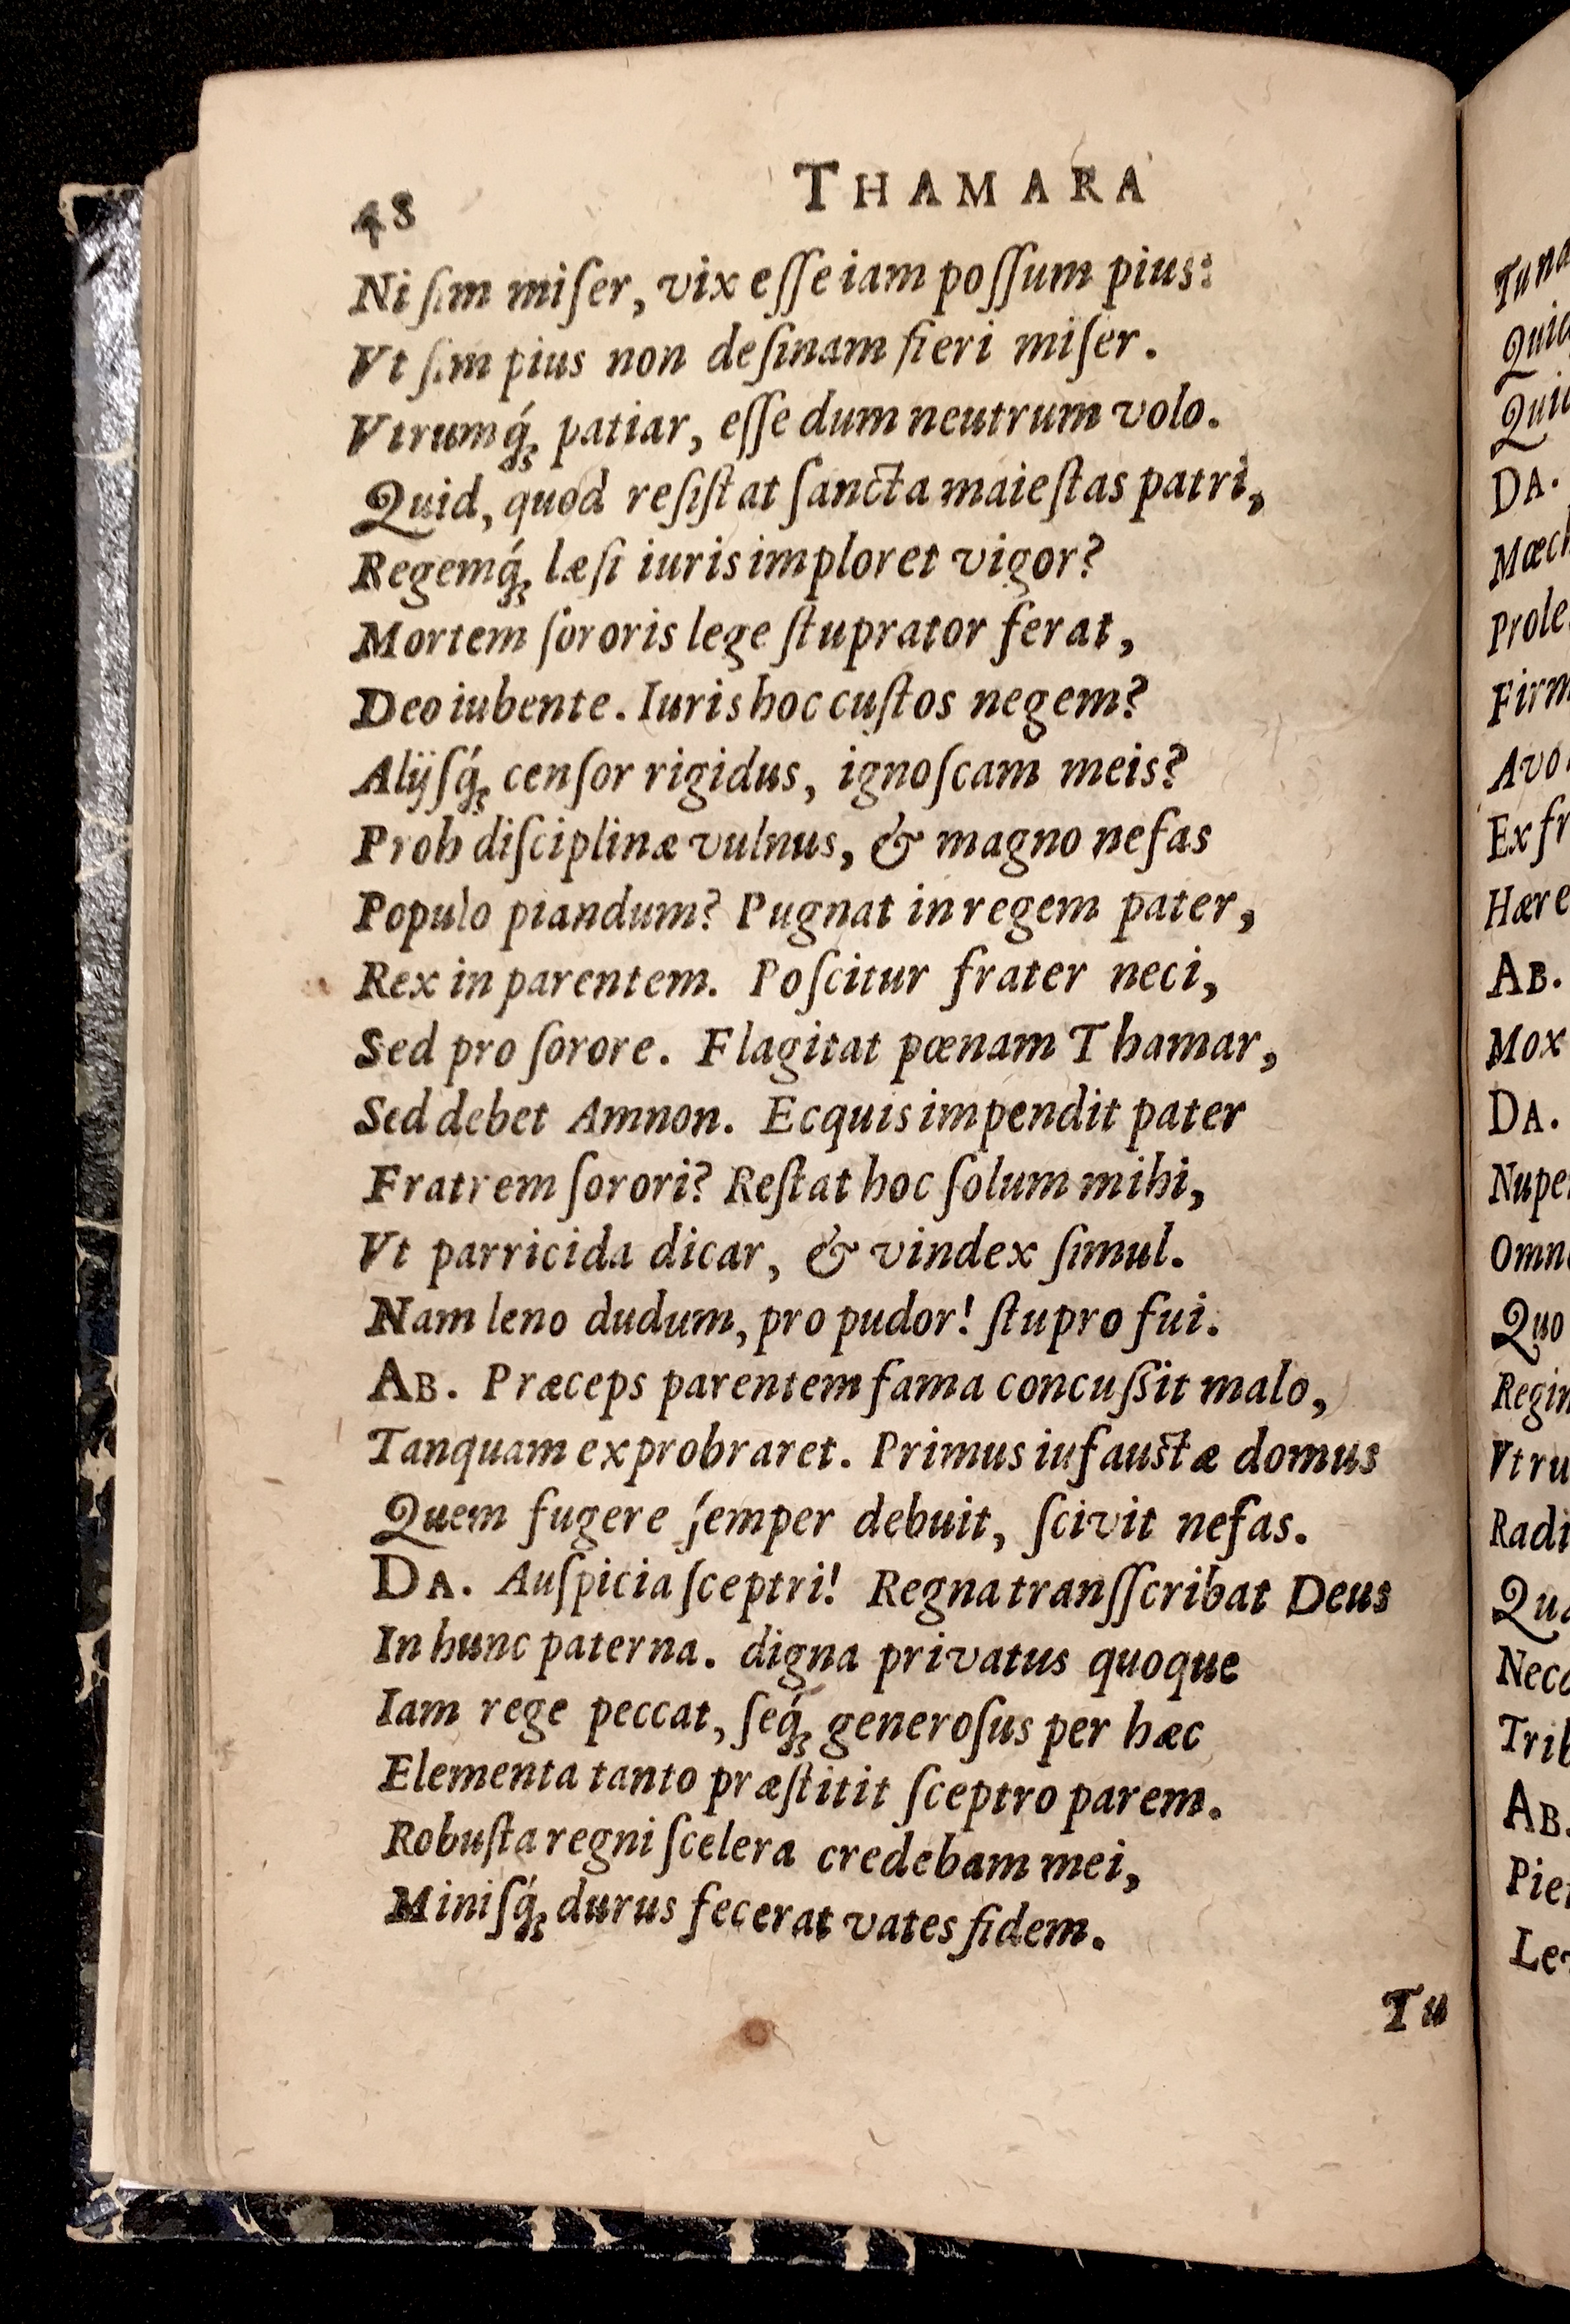 48 THAMARA
Ni ſim miſer, vix eſſe iam poſſum pius:
Vt ſim pius non deſinam fieri miſer.
Vtrumq́ꝫ patiar, eſſe dum neutrum volo.
Quid, quod reſiſtat ſancta maieſtas patri,
Regemq́ꝫ læſi iuris imploret vigor?
Mortem ſororis lege ſtuprator ferat,
Deo iubente. Iuris hoc cuſtos negem?
Alijſq́ꝫ cenſor rigidus, ignoſcam meis?
Proh diſciplinæ vulnus, & magno nefas
Populo piandum? Pugnat in regem pater,
Rex in parentem. Poſcitur frater neci,
Sed pro ſorore. Flagitat pœnam Thamar,
Sed debet Amnon. Ecquis impendit pater
Fratrem ſorori? Reſtat hoc ſolum mihi,
Vt parricida dicar, & vindex ſimul.
Nam leno dudum, pro pudor! ſtupro fui.
AB. Præceps parentem fama concuſſit malo,
Tanquam exprobraret. Primus iufauſtæ domus
Quem fugere ſemper debuit, ſcivit nefas.
DA. Auſpicia ſceptri! Regna tranſſcribat Deus
In hunc paterna. digna privatus quoque
Iam rege peccat, ſeq́ꝫ generoſus per hæc
Elementa tanto præſtitit ſceptro parem.
Robuſta regni ſcelera credebam mei,
Miniſq́ꝫ durus fecerat vates fidem.
Tu
DA.
AB.
Mox
DA.
Quo
AB.